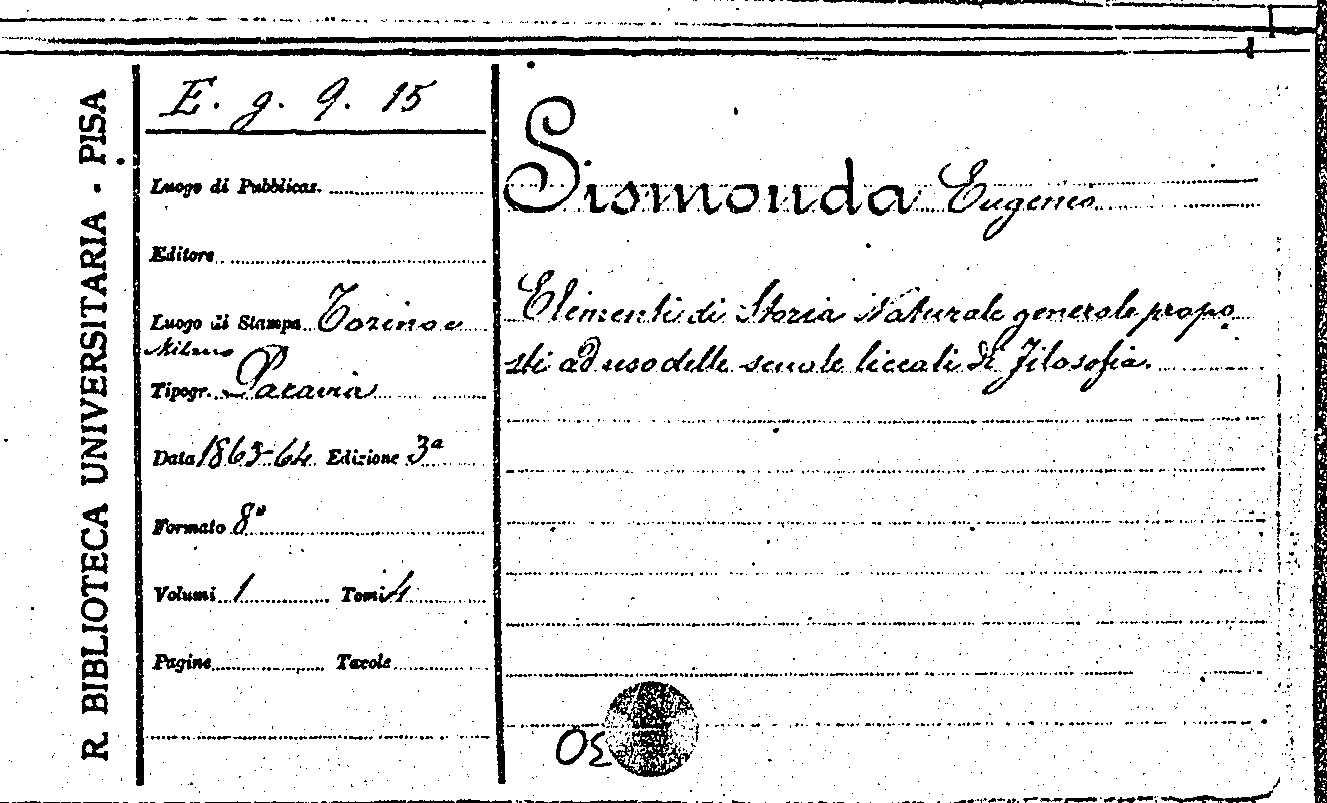 R. BIBLIOTECA UNIVERSITARIA - PISA
E. g. 9. 15
Luogo di Pubblicaz.
Editore
Luogo di Stampa Torino e
Milano
Tipogr. Paravia
Data 1863-64 Edizione 3ª
Formato 8º
Volumi 1 Tomi 4
Pagine Tavole
Sismonda Eugenio
Elementi di Storia Naturale generale propo
sti ad uso delle scuole liceali di Filosofia.